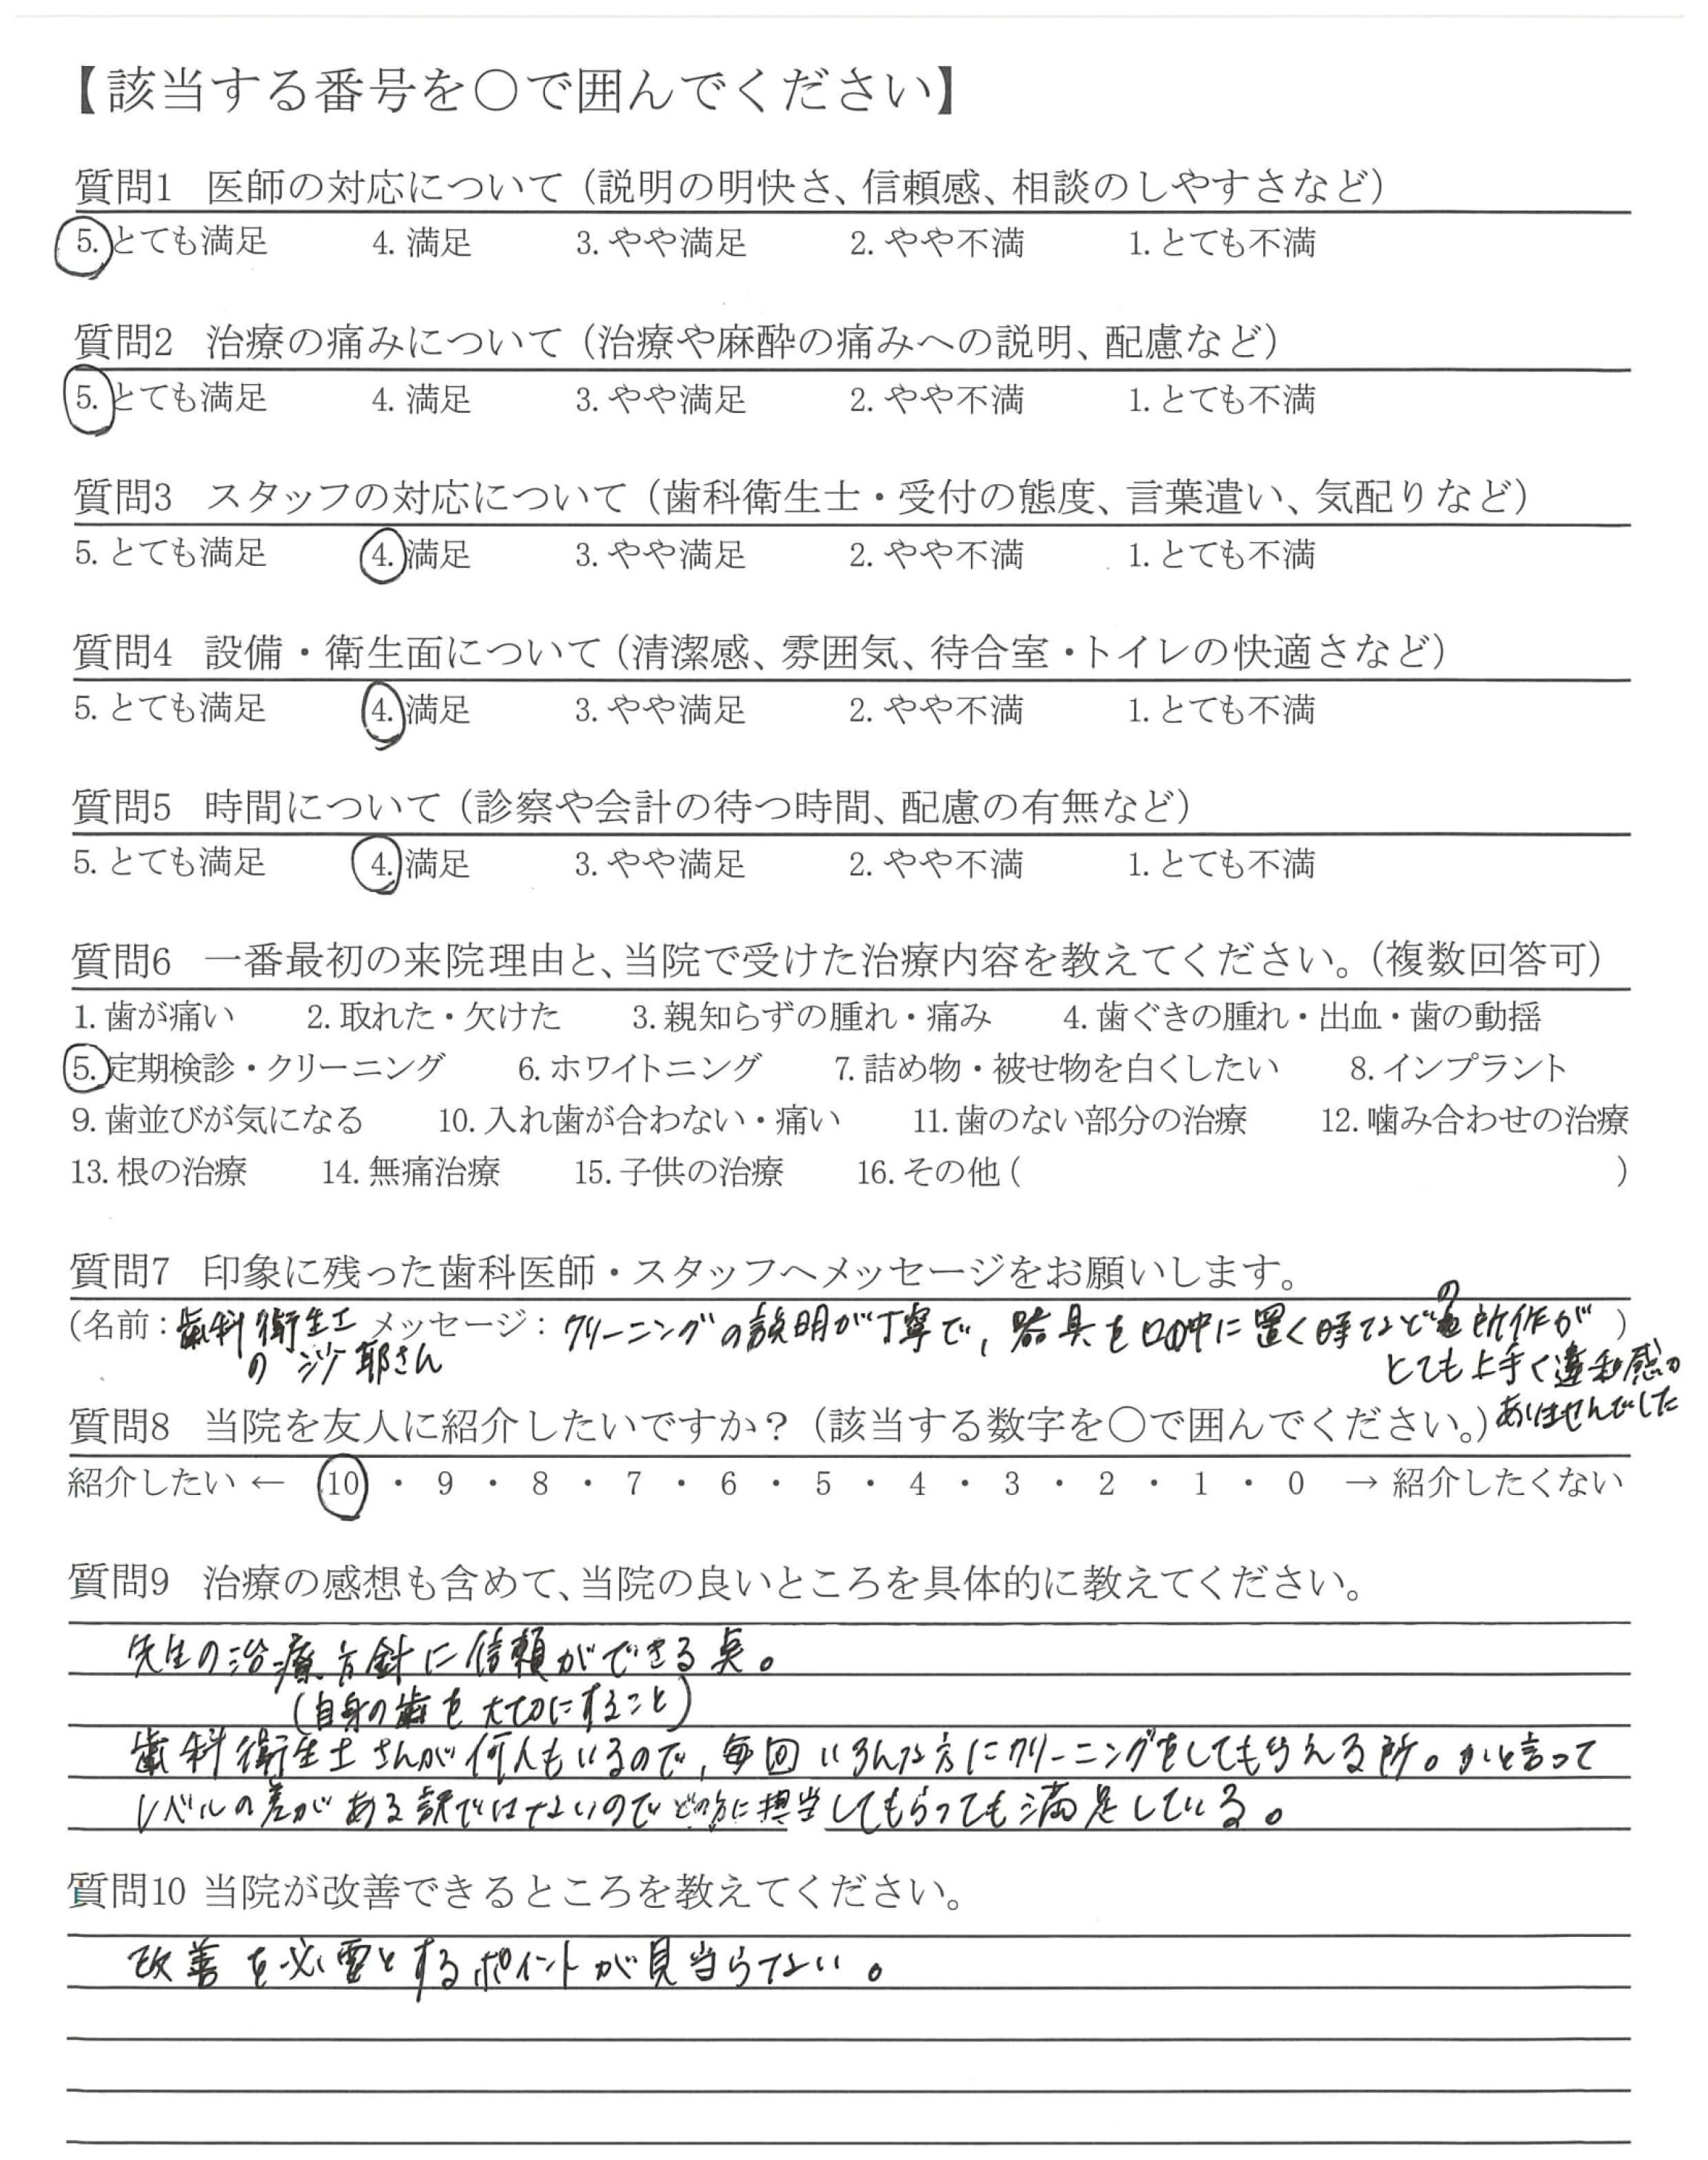 【該当する番号を○で囲んでください】
質問1 医師の対応について（説明の明快さ、信頼感、相談のしやすさなど）
5. とても満足 4. 満足 3. やや満足 2. やや不満 1. とても不満
質問2 治療の痛みについて（治療や麻酔の痛みへの説明、配慮など）
5. とても満足 4. 満足 3. やや満足 2. やや不満 1. とても不満
質問3 スタッフの対応について（歯科衛生士・受付の態度、言葉遣い、気配りなど）
5. とても満足 4. 満足 3. やや満足 2. やや不満 1. とても不満
質問4 設備・衛生面について（清潔感、雰囲気、待合室・トイレの快適さなど）
5. とても満足 4. 満足 3. やや満足 2. やや不満 1. とても不満
質問5 時間について（診察や会計の待つ時間、配慮の有無など）
5. とても満足 4. 満足 3. やや満足 2. やや不満 1. とても不満
質問6 一番最初の来院理由と、当院で受けた治療内容を教えてください。（複数回答可）
1. 歯が痛い 2. 取れた・欠けた 3. 親知らずの腫れ・痛み 4. 歯ぐきの腫れ・出血・歯の動揺
5. 定期検診・クリーニング 6. ホワイトニング 7. 詰め物・被せ物を白くしたい 8. インプラント
9. 歯並びが気になる 10. 入れ歯が合わない・痛い 11. 歯のない部分の治療 12. 噛み合わせの治療
13. 根の治療 14. 無痛治療 15. 子供の治療 16. その他（ ）
質問7 印象に残った歯科医師・スタッフへメッセージをお願いします。
（名前：歯科衛生士 メッセージ：クリーニングの説明が丁寧で、器具を口の中に置く時などの所作が）
の沙耶さん とても上手く違和感が
ありませんでした
質問8 当院を友人に紹介したいですか？（該当する数字を○で囲んでください。）
紹介したい ← 10 ・ 9 ・ 8 ・ 7 ・ 6 ・ 5 ・ 4 ・ 3 ・ 2 ・ 1 ・ 0 → 紹介したくない
質問9 治療の感想も含めて、当院の良いところを具体的に教えてください。
先生の治療方針に信頼ができる点。
（自身の歯を大切にすること）
歯科衛生士さんが何人もいるので、毎回いろんな方にクリーニングをしてもらえる所。かと言って
レベルの差がある訳ではないのでどの方に担当してもらっても満足している。
質問10 当院が改善できるところを教えてください。
改善を必要とするポイントが見当らない。